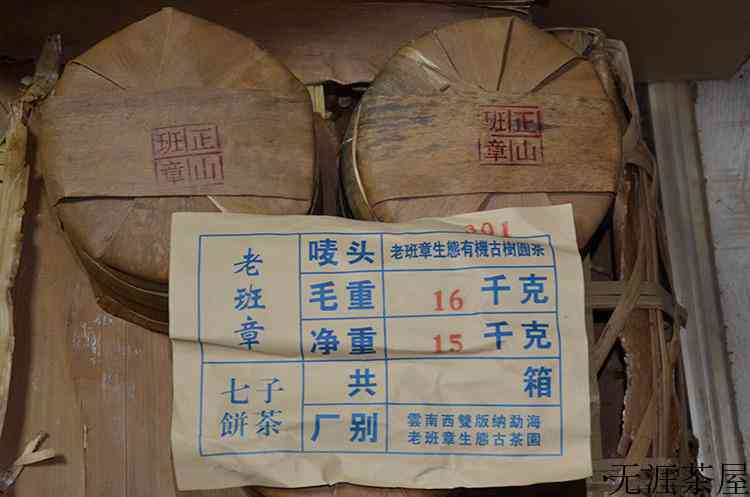 班正
章山
班正
章山
201
老班章
唛头 老班章生態有機古樹圆茶
毛重 16 千克
净重 15 千克
七子
餅茶
共 箱
厂别 雲南西雙版纳勐海
老班章生態古茶園
无涯茶屋